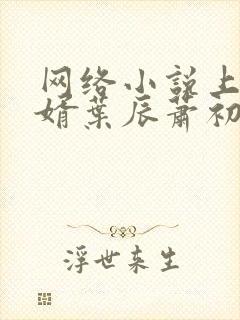 网络小说上
婿叶辰萧初
浮世来生